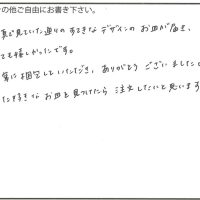 の他ご自由にお書き下さい。
真で見ていた通りのすてきなデザインのお皿が届き、
ても嬉しかったです。
寧に梱包していただき、ありがとうございました。
た好きなお皿を見つけたら注文したいと思います